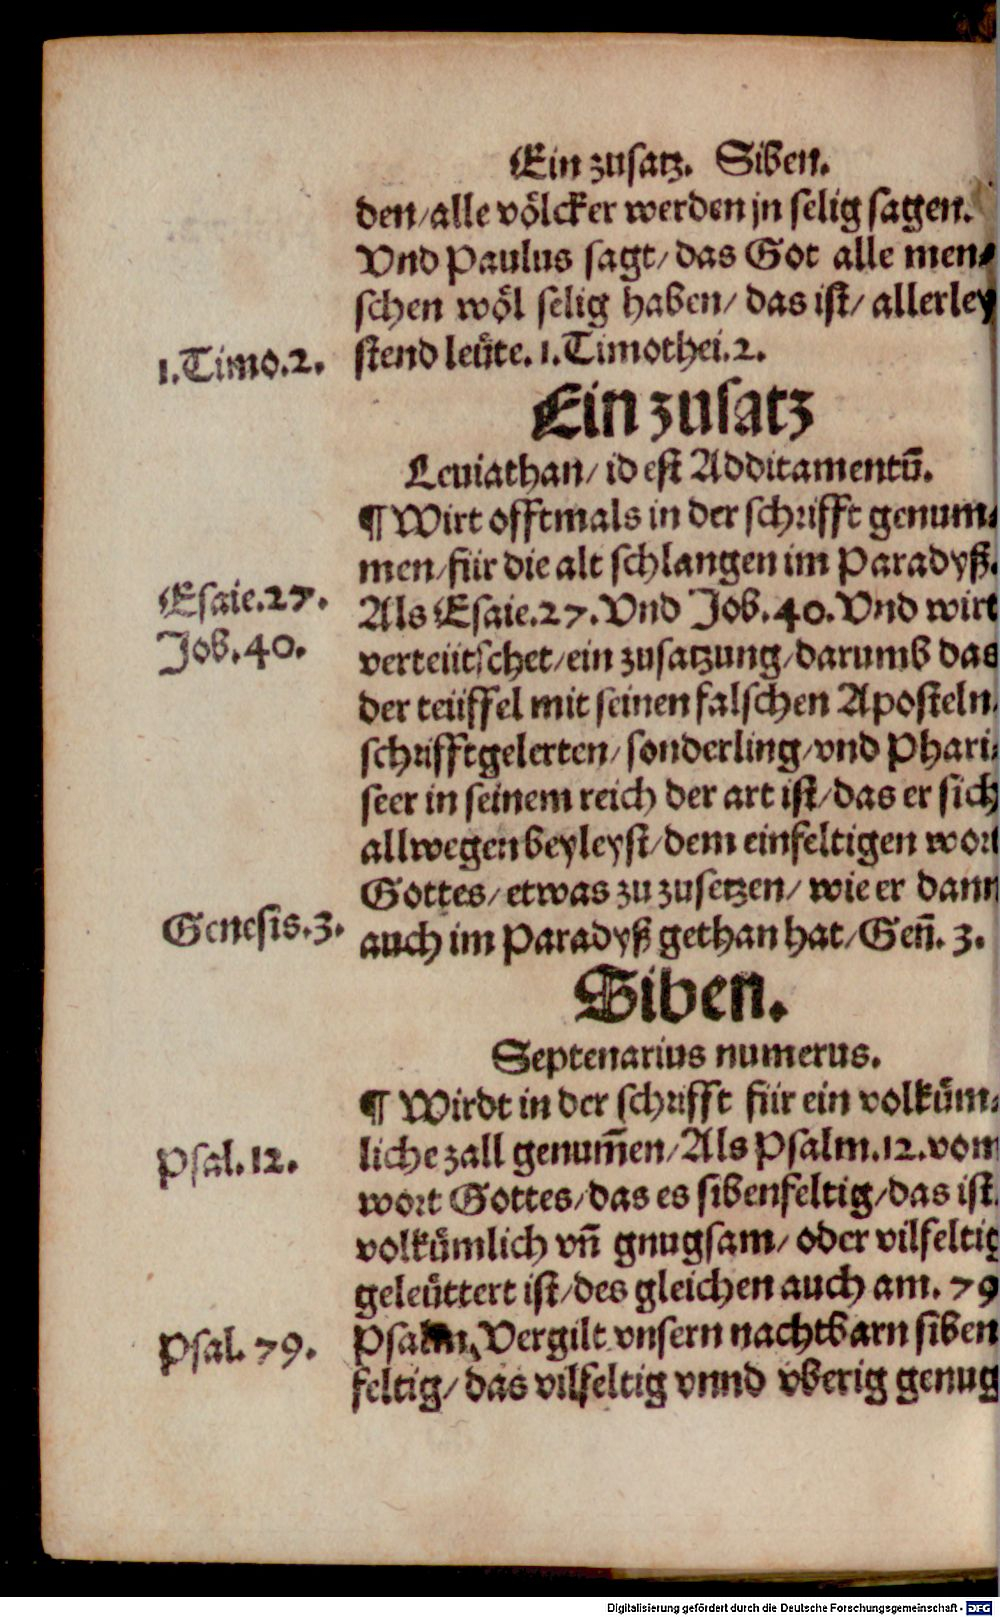 Ein zusatz. Siben.
den/alle völcker werden jn selig sagen.
Vnd Paulus sagt/ das Got alle men⸗
schen wöl selig haben/ das ist/ allerley
1.Timo.2.
stend leüte. 1.Timothei.2.
Ein zusatz
Leuiathan/ id est Additamentū.
¶ Wirt offtmals in der schrifft genum⸗
men/für die alt schlangen im Paradyß.
Esaie.27.
Als Esaie.27. Vnd Job.40. Vnd wirt
Job.40.
verteütschet/ein zusatzung/darumb das
der teüffel mit seinen falschen Aposteln
schrifftgelerten/ sonderling/vnd Phari⸗
seer in seinem reich der art ist/das er sich
allwegen beyleyst/dem einfeltigen wort
Gottes/ etwas zu zusetzen/ wie er dann
Genesis.3.
auch im Paradyß gethan hat/Geñ. 3.
Siben.
Septenarius numerus.
¶ Wirdt in der schrifft für ein volküm⸗
Psal.12.
liche zall genum̄en/Als Psalm.12.vom
wort Gottes/das es sibenfeltig/das ist
volkümlich vn̄ gnugsam/ oder vilfeltig
geleüttert ist/des gleichen auch am. 79
Psal. 79.
Psalm, Vergilt vnsern nachtbarn siben
feltig/ das vilfeltig vnnd vberig genug
Digitalisierung gefördert durch die Deutsche Forschungsgemeinschaft - DFG